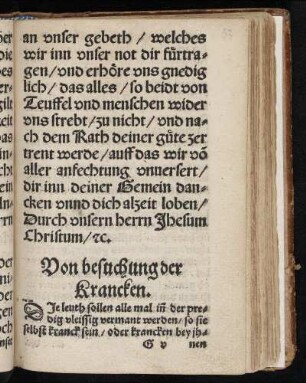 an vnser gebeth / welches
wir inn vnser not dir fürtra-
gen / vnd erhöre vns gnedig
lich / das alles / so beidt von
Teuffel vnd menschen wider
vns strebt / zu nicht / vnd na-
ch dem Rath deiner güte zer
trent werde / auff das wir võ
aller anfechtung vnuersert /
dir inn deiner Gemein dan-
cken vnnd dich alzeit loben /
Durch vnsern herrn Jhesum
Christum / ꝛc.
Von besuchung der
Krancken.
DJe leuth sollen alle mal iñ der pre-
dig vleissig vermant werden / so sie
selbst kranck sein / oder krancken bey jh-
G v nen